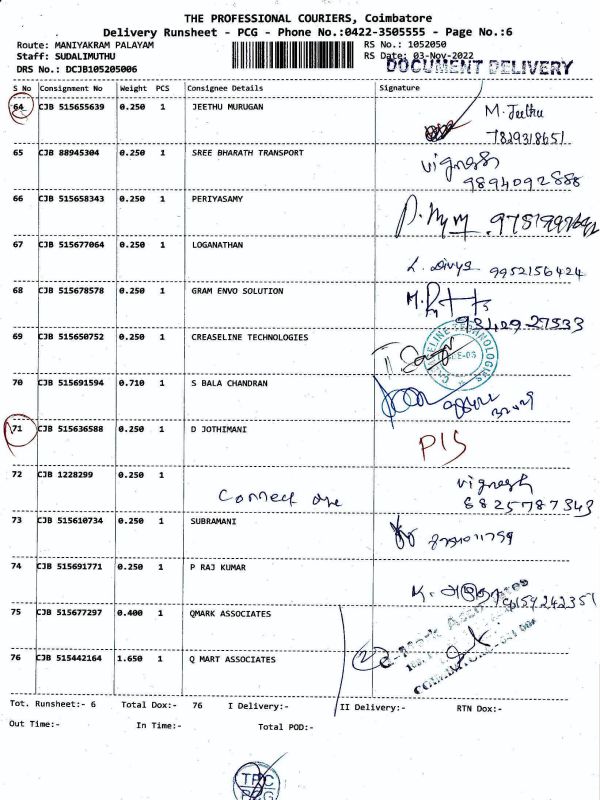 THE PROFESSIONAL COURIERS, Coimbatore
Delivery Runsheet - PCG - Phone No.:0422-3505555 - Page No.:6
Route: MANIYAKRAM PALAYAM
RS No.: 1052050
Staff: SUDALIMUTHU
RS Date: 03-Nov-2022
DRS No.: DCJB105205006
DOCUMENT DELIVERY
S No Consignment No Weight PCS Consignee Details Signature
64 CJB 515655639 0.250 1 JEETHU MURUGAN M. Jeethu
7829318651
65 CJB 88945304 0.250 1 SREE BHARATH TRANSPORT Vignesh
9894092888
66 CJB 515658343 0.250 1 PERIYASAMY
67 CJB 515677064 0.250 1 LOGANATHAN L. Divya 9952156424
68 CJB 515678578 0.250 1 GRAM ENVO SOLUTION
9842927533
69 CJB 515650752 0.250 1 CREASELINE TECHNOLOGIES
CREASELINE TECHNOLOGIES
70 CJB 515691594 0.710 1 S BALA CHANDRAN
71 CJB 515636588 0.250 1 D JOTHIMANI P/S
72 CJB 1228299 0.250 1 Connect one Vignesh
8825787343
73 CJB 515610734 0.250 1 SUBRAMANI
74 CJB 515691771 0.250 1 P RAJ KUMAR
75 CJB 515677297 0.400 1 QMARK ASSOCIATES
76 CJB 515442164 1.650 1 Q MART ASSOCIATES
Tot. Runsheet:- 6 Total Dox:- 76 I Delivery:- II Delivery:- RTN Dox:-
Out Time:- In Time:- Total POD:-
TPC
PCG